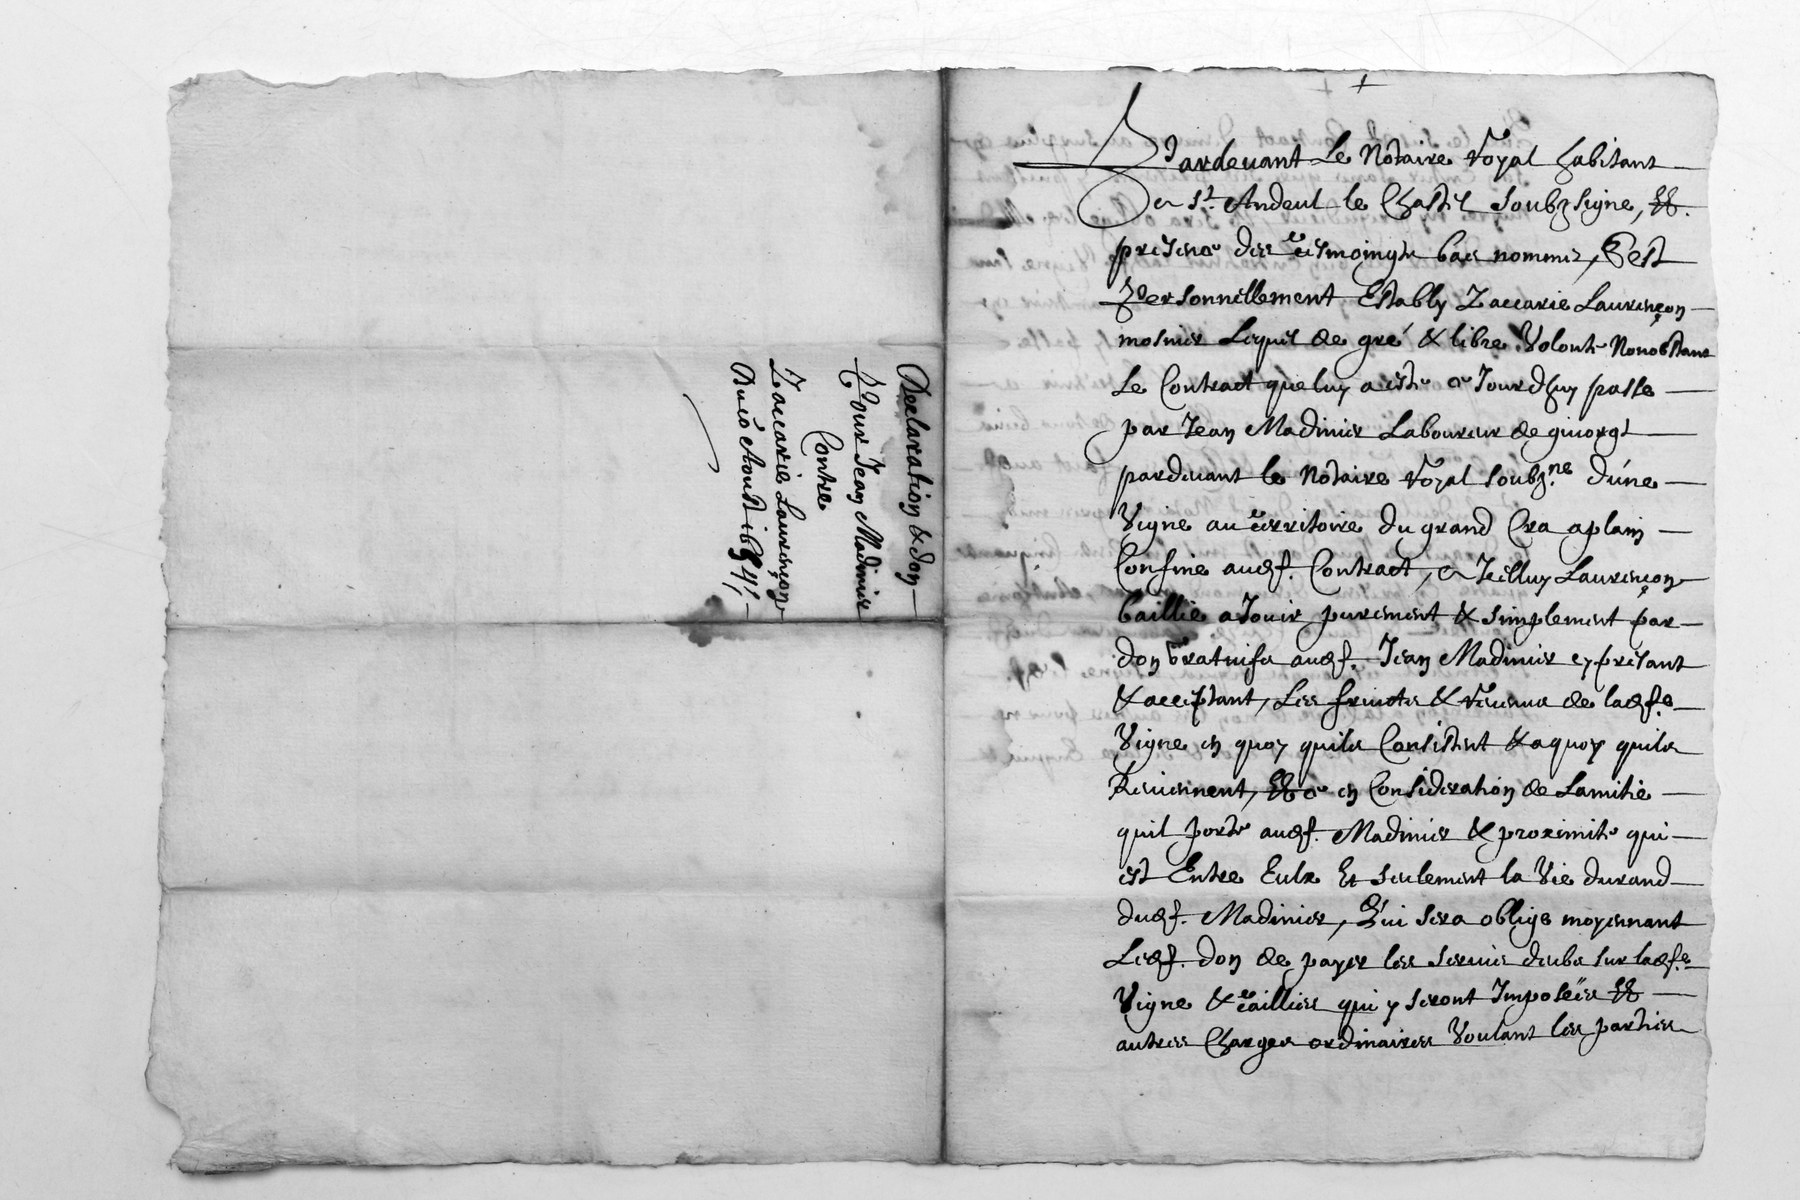 Declaration & don
Pour Jean Madinier
Contre
Zaccarie Laurençon
Du io Aoust i654
Pardevant Le Notaire Royal habitant
a St. Andeul le Chastel soubzsigne, &
presence des tesmoingts bas nommez, Cest
Personnellement Estably Zaccarie Laurençon
mosnier Lequel de gré & libre Volonte Nonobstant
Le Contract que luy a este ce Jourdhuy passe
par Jean Madinier Laboureur de
pardevant le Notaire Royal soubz.ne dúne
Vigne au territoire du grand Cra aplain
Confine audf. Contract, a Icelluy Laurençon
baillie a Jouir purement & simplement par
don gratuife audf. Jean Madinier present
& acceptant, Les fruicts & revenus de ladf.e
Vigne en quoy quils Consistent & a quoy quils
Reviennent, & ce en Consideration de Lamitie
quil porte audf. Madinier & proximite qui
est Entre Eulx Et seulement la Vie durand
dudf. Madinier, Qui sera oblige moyennant
Ledf. don de payer les servis deubs sur ladf.e
Vigne & tailles qui y seront Imposées &
autres Charges ordinaires Voulant les parties